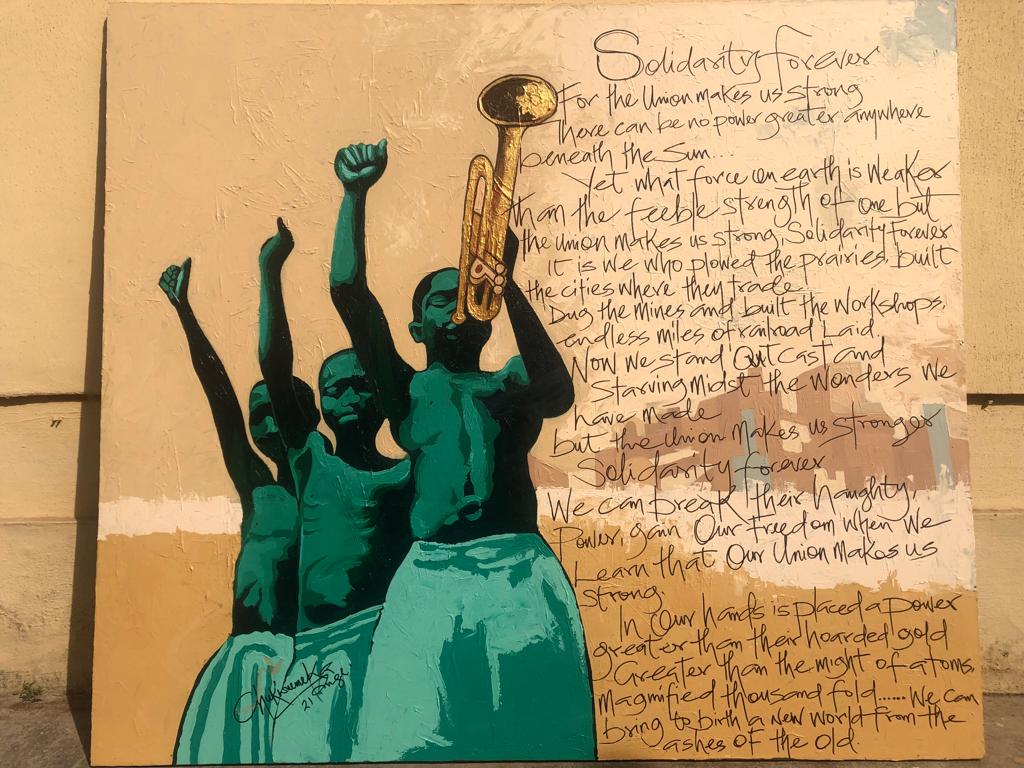 Solidarity forever
For the Union makes us strong
There can be no power greater anywhere
beneath the Sun...
Yet what force on earth is Weaker
than the feeble strength of one but
the union makes us strong, Solidarity forever
it is we who plowed the prairies, built
the cities where they trade
Dug the Mines and built the Workshops,
endless miles of railroad Laid
Now we stand Outcast and
Starving Midst the Wonders We
have made
but the Union Makes us stronger
Solidarity forever
We can break their haughty,
Power, gain Our Freedom When We
Learn that Our Union Makes us
strong.
In Our hands is placed a power
greater than their hoarded gold
Greater than the might of atoms
Magnified thousand fold...... We can
bring to birth a new world from the
ashes OF the Old.
21